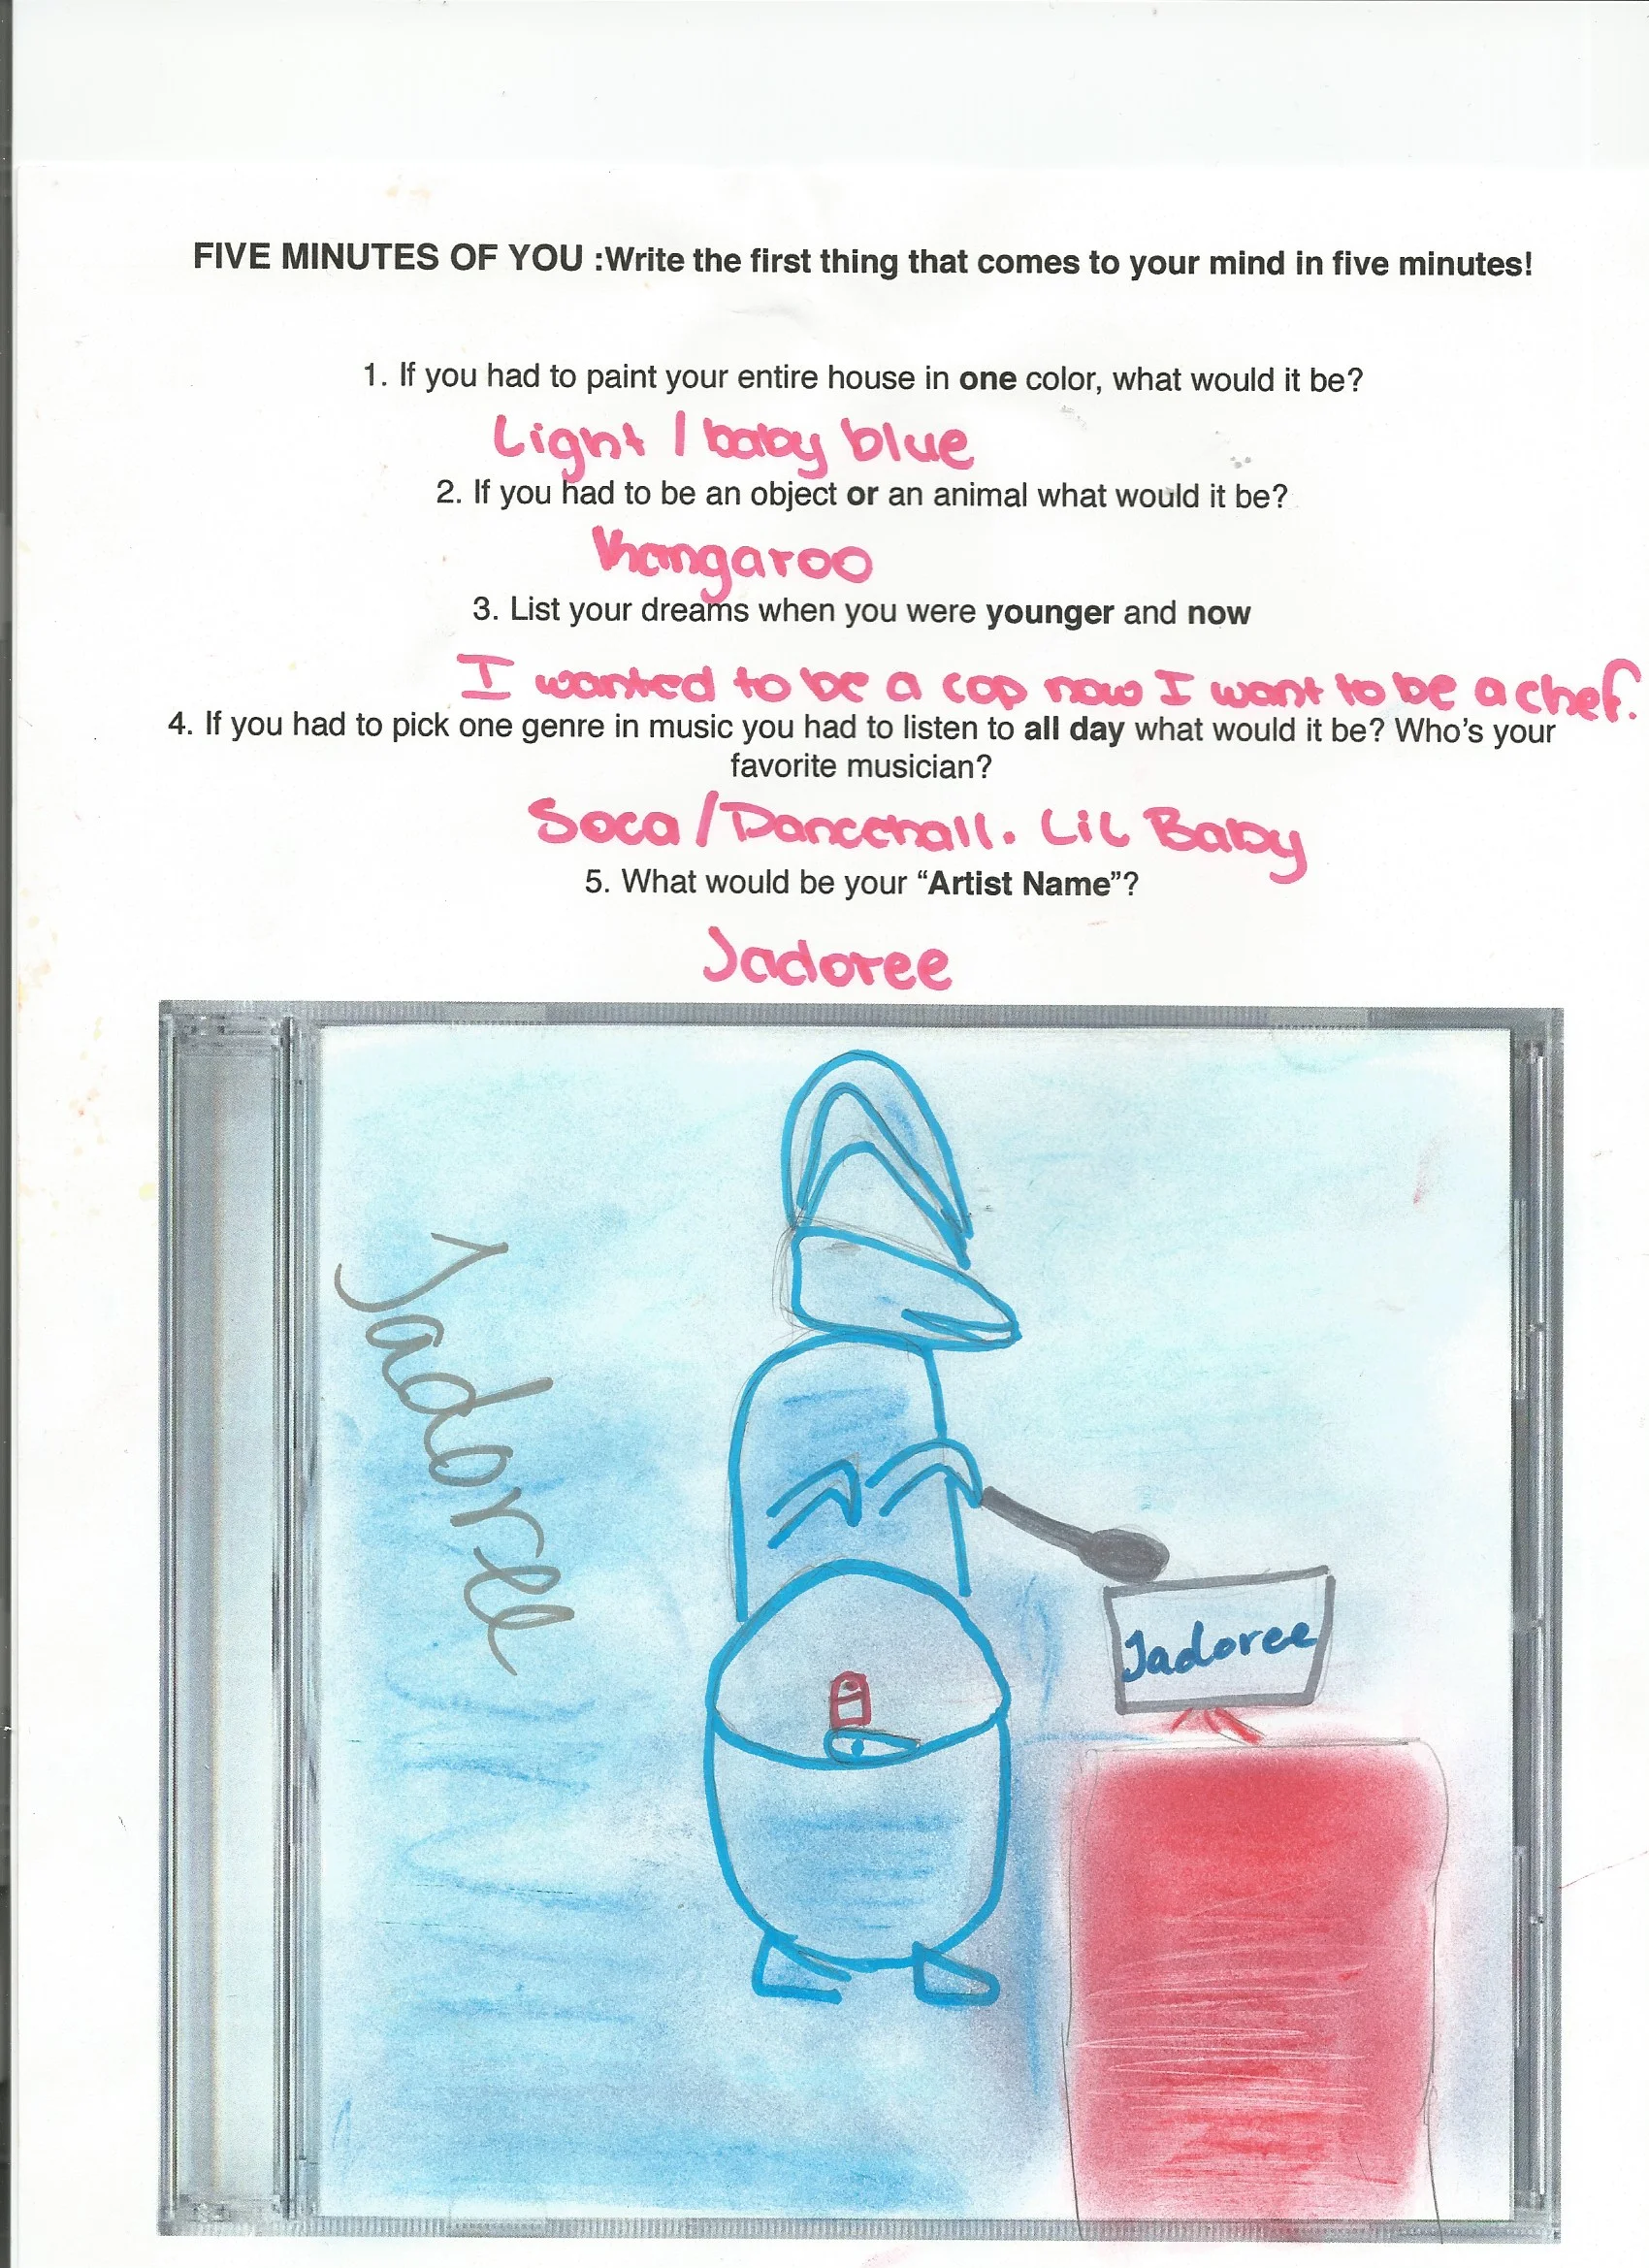 FIVE MINUTES OF YOU :Write the first thing that comes to your mind in five minutes!
1. If you had to paint your entire house in one color, what would it be?
Light / baby blue
2. If you had to be an object or an animal what would it be?
Kangaroo
3. List your dreams when you were younger and now
I wanted to be a cop now I want to be a chef.
4. If you had to pick one genre in music you had to listen to all day what would it be? Who's your
favorite musician?
Soca/Dancehall. Lil Baby
5. What would be your “Artist Name”?
Jadoree
Jadoree
Jadoree